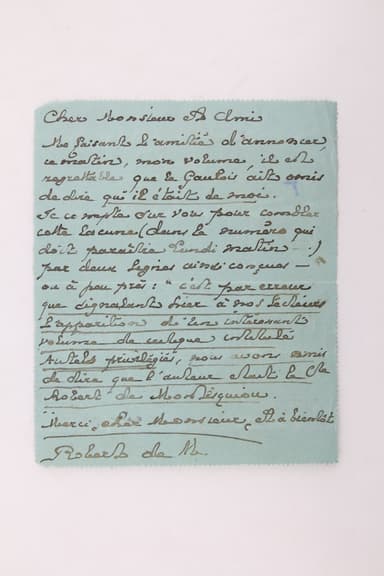 Cher Monsieur Et Ami
Me faisant l'amitié d'annoncer,
ce matin, mon volume, il est
regrettable que le Gaulois ait omis
de dire qu'il était de moi.
Je compte sur vous pour combler
cette lacune (dans le numéro qui
doit paraître lundi matin...)
par deux lignes ainsi conçues —
ou à peu près : "c'est par erreur
que signalant hier à nos lecteurs
l'apparition d'un intéressant
volume de critique intitulé
Autels privilégiés, nous avons omis
de dire que l'auteur était le Cte
Robert de Montesquiou.
Merci, cher Monsieur, Et à bientôt
Robert de M.